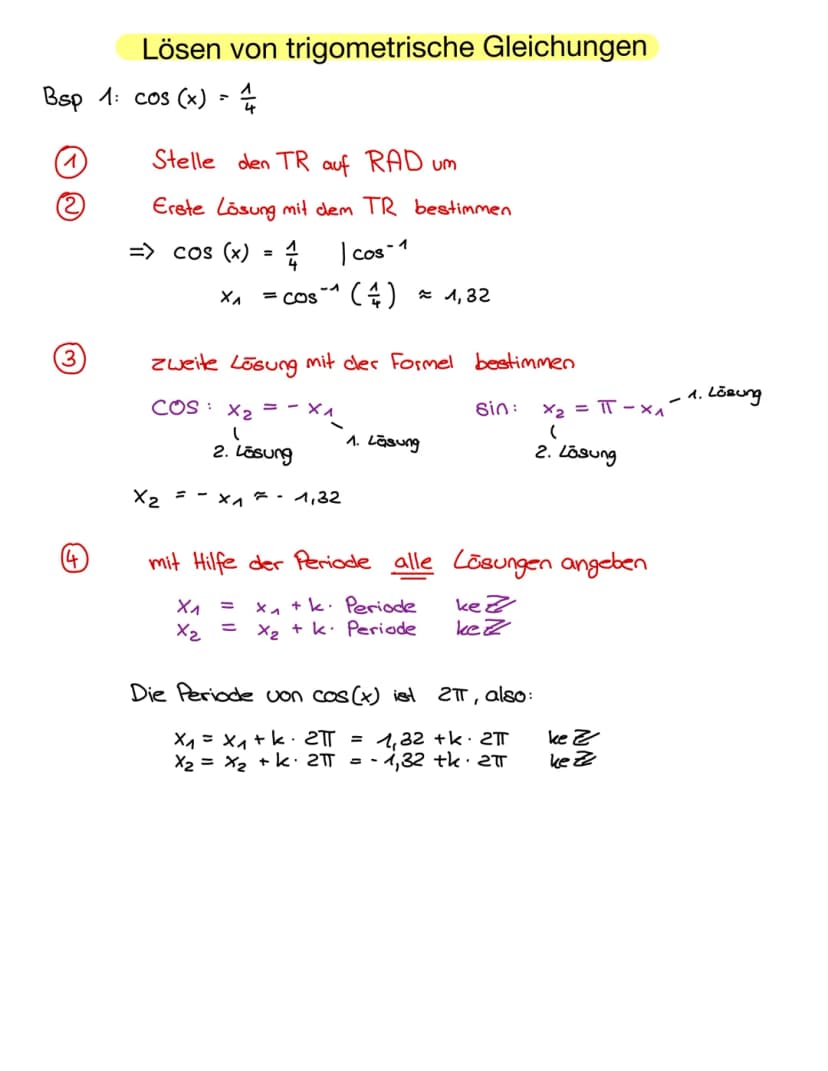 Lösen von trigometrische Gleichungen
Bsp 1: cos (x) = 1/4
① Stelle den TR auf RAD um
② Erste Lösung mit dem TR bestimmen
=> cos (x) = 1/4 | cos⁻¹
x₁ = cos⁻¹ (1/4) ≈ 1,32
③ zweite Lösung mit der Formel bestimmen
COS: x₂ = - x₁ sin: x₂ = π - x₁ 1. Lösung
2. Lösung 1. Lösung 2. Lösung
x₂ = - x₁ ≈ - 1,32
④ mit Hilfe der Periode alle Lösungen angeben
x₁ = x₁ + k · Periode k∈ℤ
x₂ = x₂ + k · Periode k∈ℤ
Die Periode von cos(x) ist 2π, also:
x₁ = x₁ + k · 2π = 1,32 + k · 2π k∈ℤ
x₂ = x₂ + k · 2π = - 1,32 + k · 2π k∈ℤ